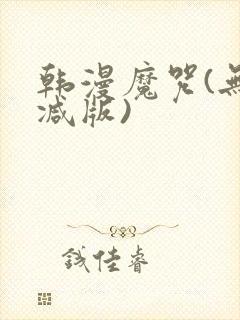 韩漫魔咒(無
减版)
钱佳睿